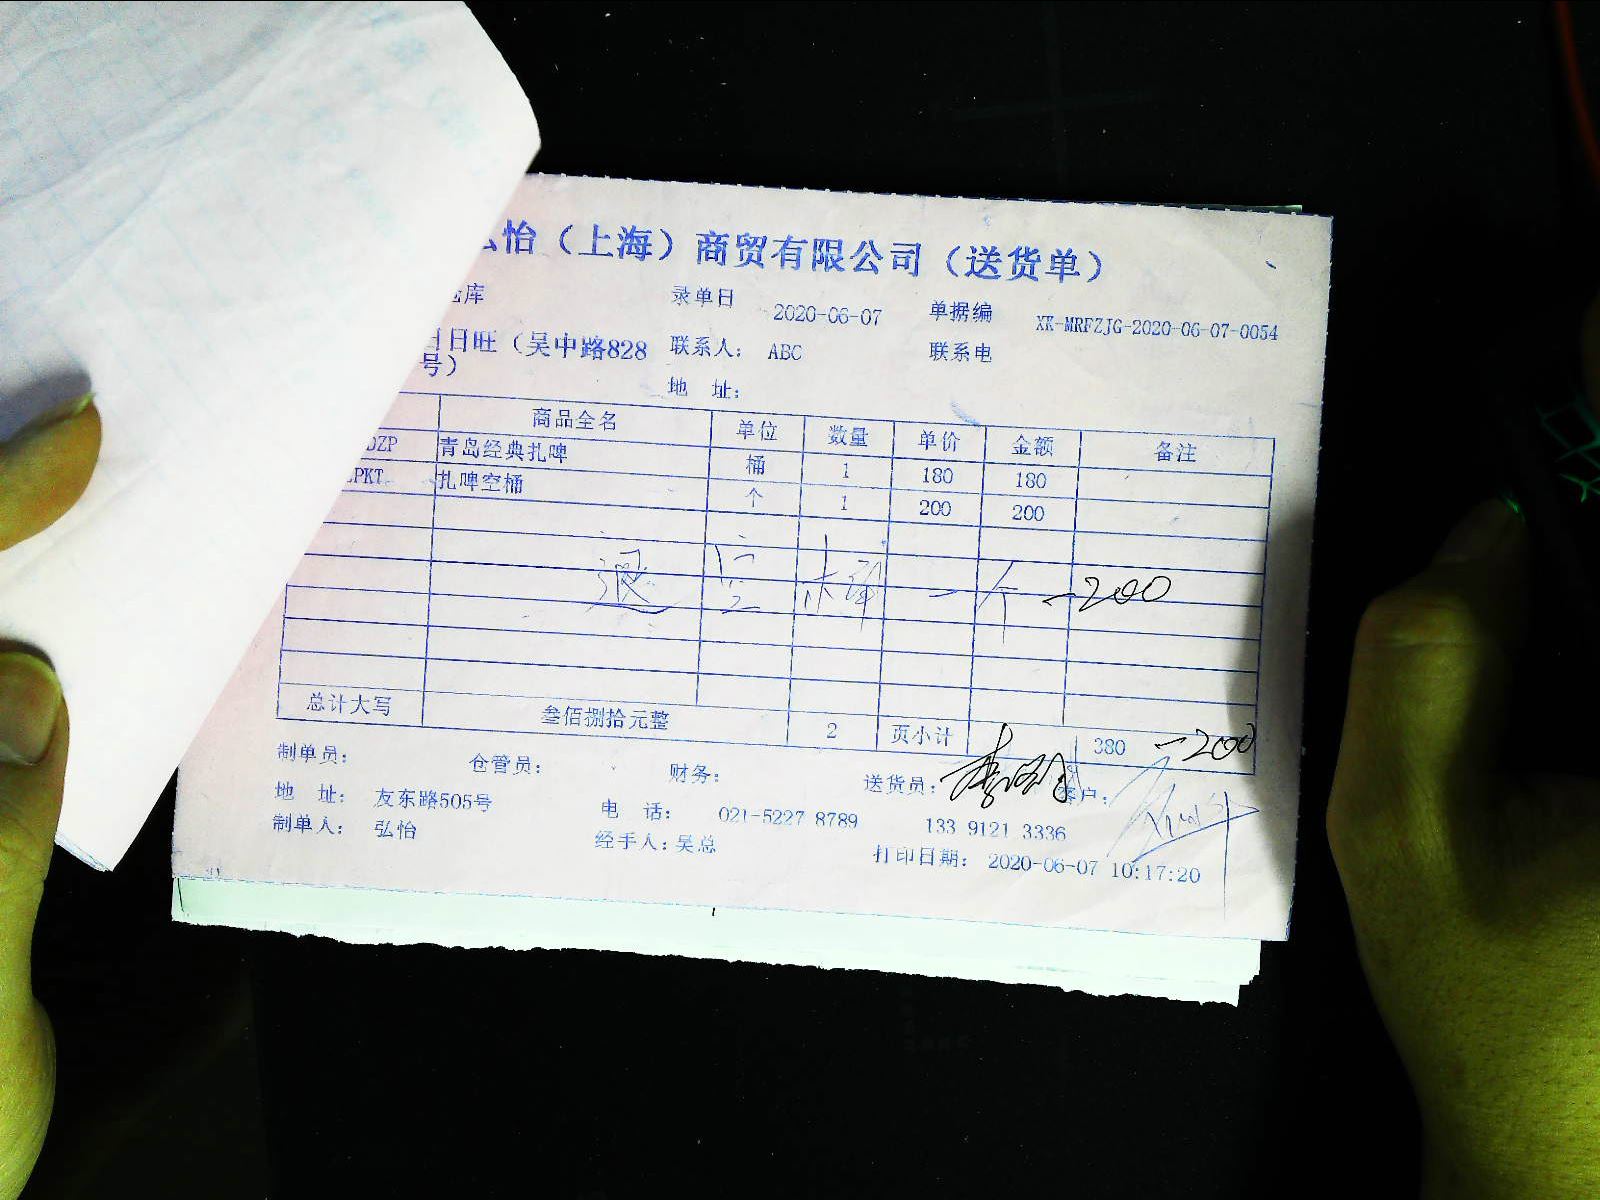 怡（上海）商贸有限公司（送货单）
库 录单日 2020-06-07 单据编 XK-MRFZJG-2020-06-07-0054
日旺（吴中路828号） 联系人： ABC 联系电
地 址：
商品全名 单位 数量 单价 金额 备注
DZP 青岛经典扎啤 桶 1 180 180
PKT 扎啤空桶 个 1 200 200
退 空 桶 一 个 -200
总计大写 叁佰捌拾元整 2 页小计 380 -200
制单员： 仓管员： 财务： 送货员： 客户：
地 址： 友东路505号 电 话： 021-5227 8789 133 9121 3336
制单人： 弘怡 经手人：吴总 打印日期： 2020-06-07 10:17:20